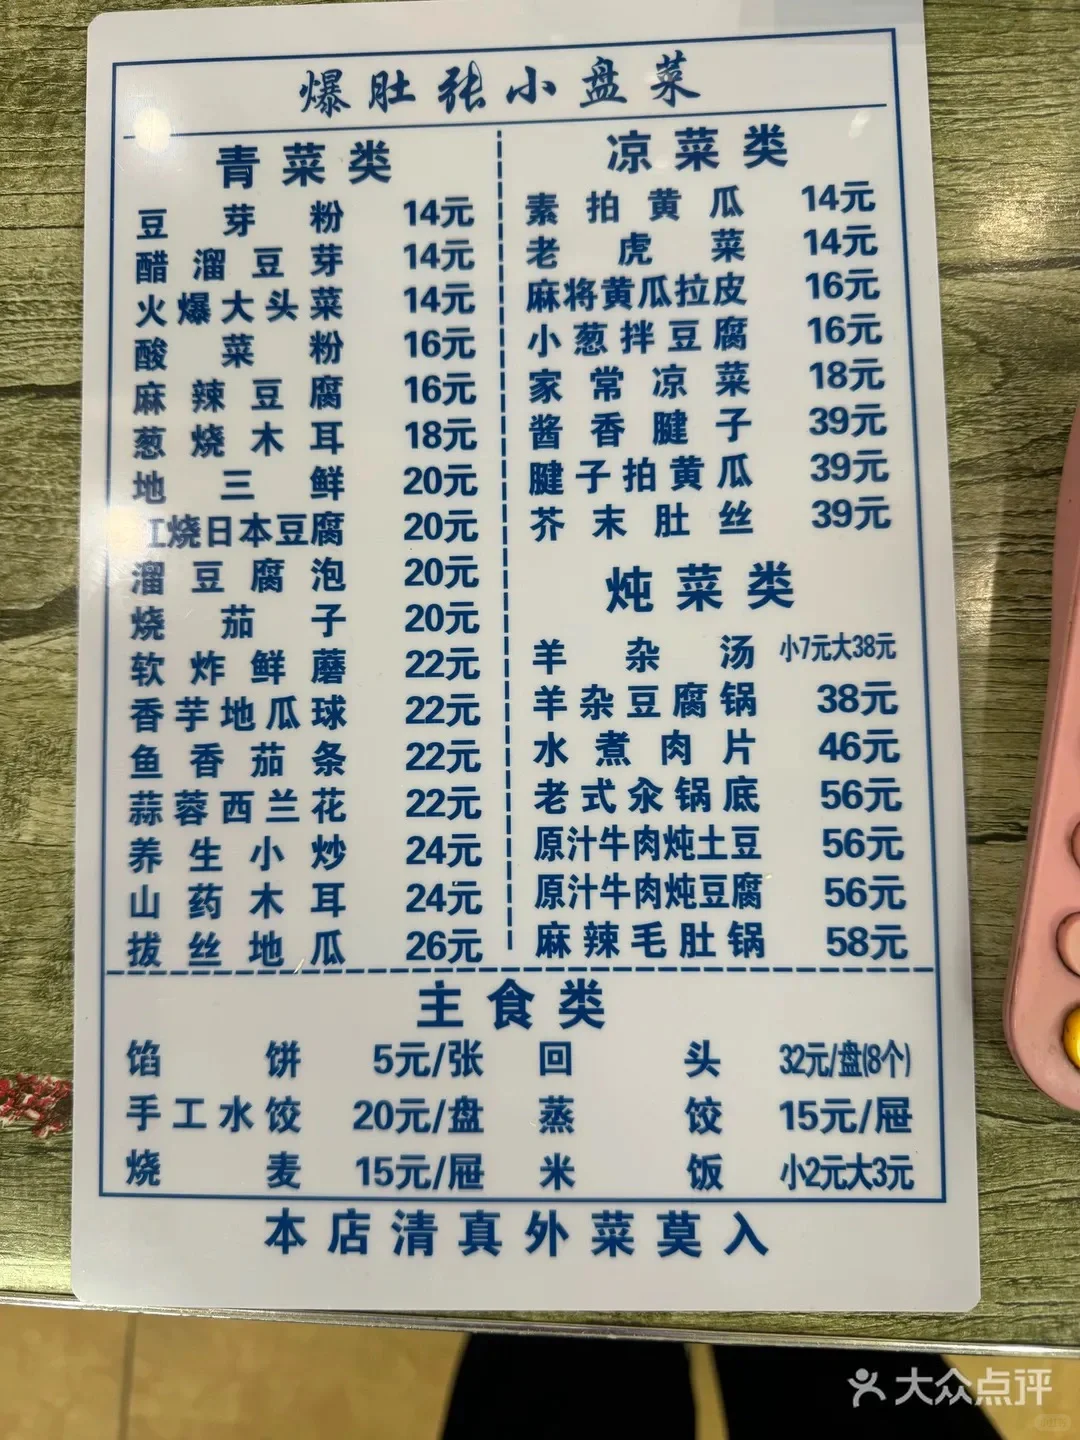 爆肚张小盘菜
青菜类
豆芽粉 14元
醋溜豆芽 14元
火爆大头菜 14元
酸菜粉 16元
麻辣豆腐 16元
葱烧木耳 18元
地三鲜 20元
红烧日本豆腐 20元
溜豆腐泡 20元
烧茄子 20元
软炸鲜蘑 22元
香芋地瓜球 22元
鱼香茄条 22元
蒜蓉西兰花 22元
养生小炒 24元
山药木耳 24元
拔丝地瓜 26元
凉菜类
素拍黄瓜 14元
老虎菜 14元
麻将黄瓜拉皮 16元
小葱拌豆腐 16元
家常凉菜 18元
酱香腱子 39元
腱子拍黄瓜 39元
芥末肚丝 39元
炖菜类
羊杂汤 小7元大38元
羊杂豆腐锅 38元
水煮肉片 46元
老式汆锅底 56元
原汁牛肉炖土豆 56元
原汁牛肉炖豆腐 56元
麻辣毛肚锅 58元
主食类
馅饼 5元/张 回头 32元/盘(8个)
手工水饺 20元/盘 蒸饺 15元/屉
烧麦 15元/屉 米饭 小2元大3元
本店清真外菜莫入
大众点评